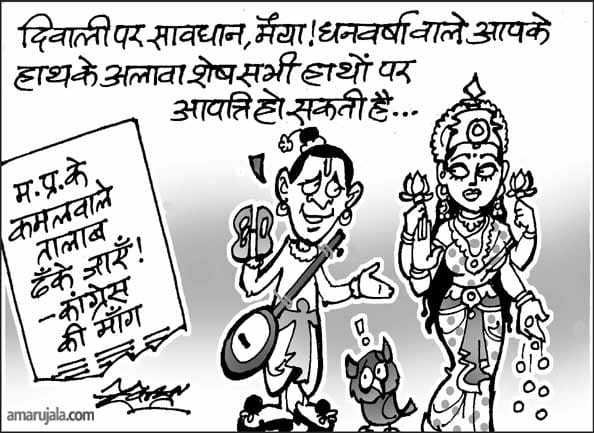 दिवाली पर सावधान, मैया! धनवर्षा वाले आपके
हाथ के अलावा शेष सभी हाथों पर
आपत्ति हो सकती है...
म.प्र.के
कमलवाले
तालाब
ढँके जाएँ!
-कांग्रेस
की माँग
amarujala.com